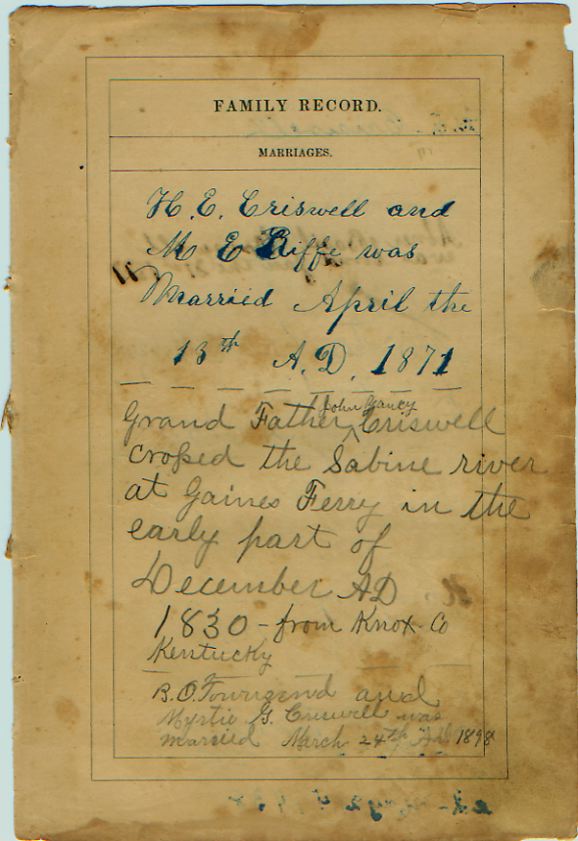 FAMILY RECORD.
MARRIAGES.
H. E. Criswell and
M E Riffe was
Marriid April the
13th A.D. 1871
John Yancy
Grand Father ^ Criswell
croſsed the Sabine river
at Gaines Ferry in the
early part of
December AD
1830 - from Knox Co
Kentucky
B. O. Townsend and
Myrtie G. Criswell was
married March 24th AD 1898